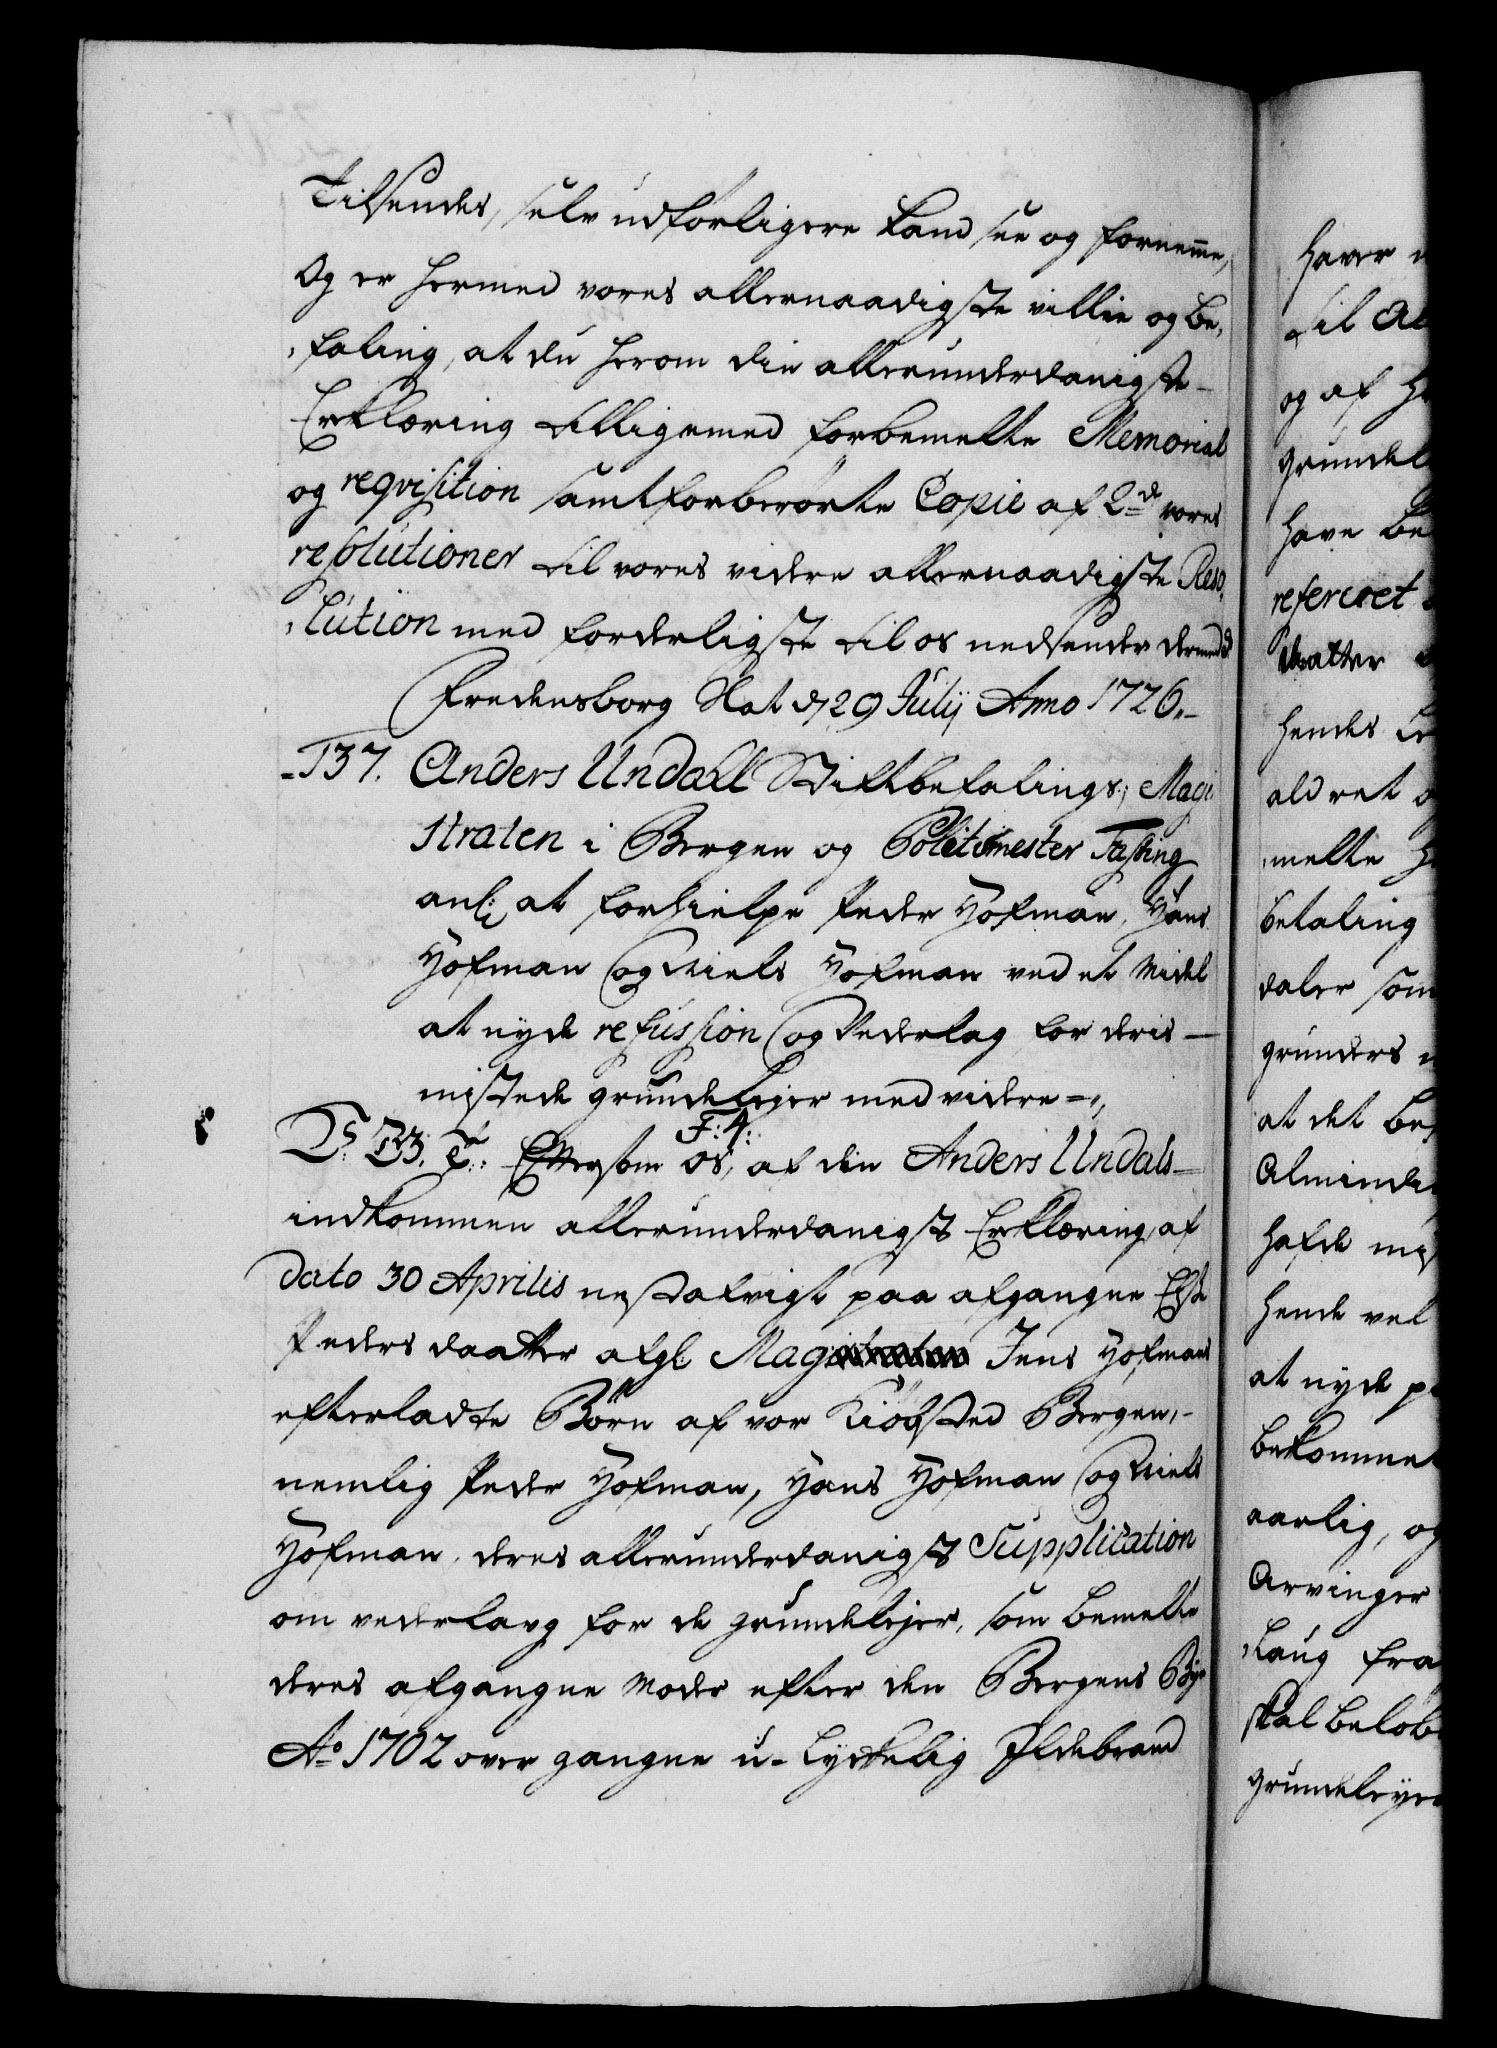 Tilsendes, selv udførligere kand see og fornemme,
Og er hermed vores allernaadigste villie og be,
,faling, at du herom din allerunderdanigste
Erklæring tilligemed forbemelte Memorial
og reqvisition samt forberørte Copie af 2de vores
resolutioner til vores videre allernaadigste Reso,
,lution med forderligste til os nedsender dermed
Fredensborg Slot d 29 Julij Anno 1726.
137. Anders Undall Stiftbefalings, Magi
straten i Bergen og Politimester Fasting
anl: at forhielpe Peder Hofman, Hans
Hofman og Niels Hofman ved et Midel
at nyde refussion og Vederlag for deris
mistede grundeleyer med videre
F: 4:
Eftersom os, af din Anders Undals
indkommen allerunderdanigste Erklæring, af
dato 30 Aprilis nestafvigt paa afgangne Else
Peders daatter afgl: Mag Jens Hofmans
efterladte Børn af vor Kiøbsted Bergen,
nemlig Peder Hofman, Hans Hofman og Niels
Hofman, deres allerunderdanigste Supplication
om vederlaug for de grundeleyer, som bemelte
deres afgangne Moder efter den Bergens Bye
Ao 1702 over gangne u-lyckelig Ildebrand
haver
til
og af
grundel
have be
refereret
hendes
ald ret
melte
betaling
daler som
grunders
at det be
Alminde
hafde mis
hende vel
at nyde
bekomme
aarlig, og
Arvinger
,laug fra
skal beløb
grundeleye